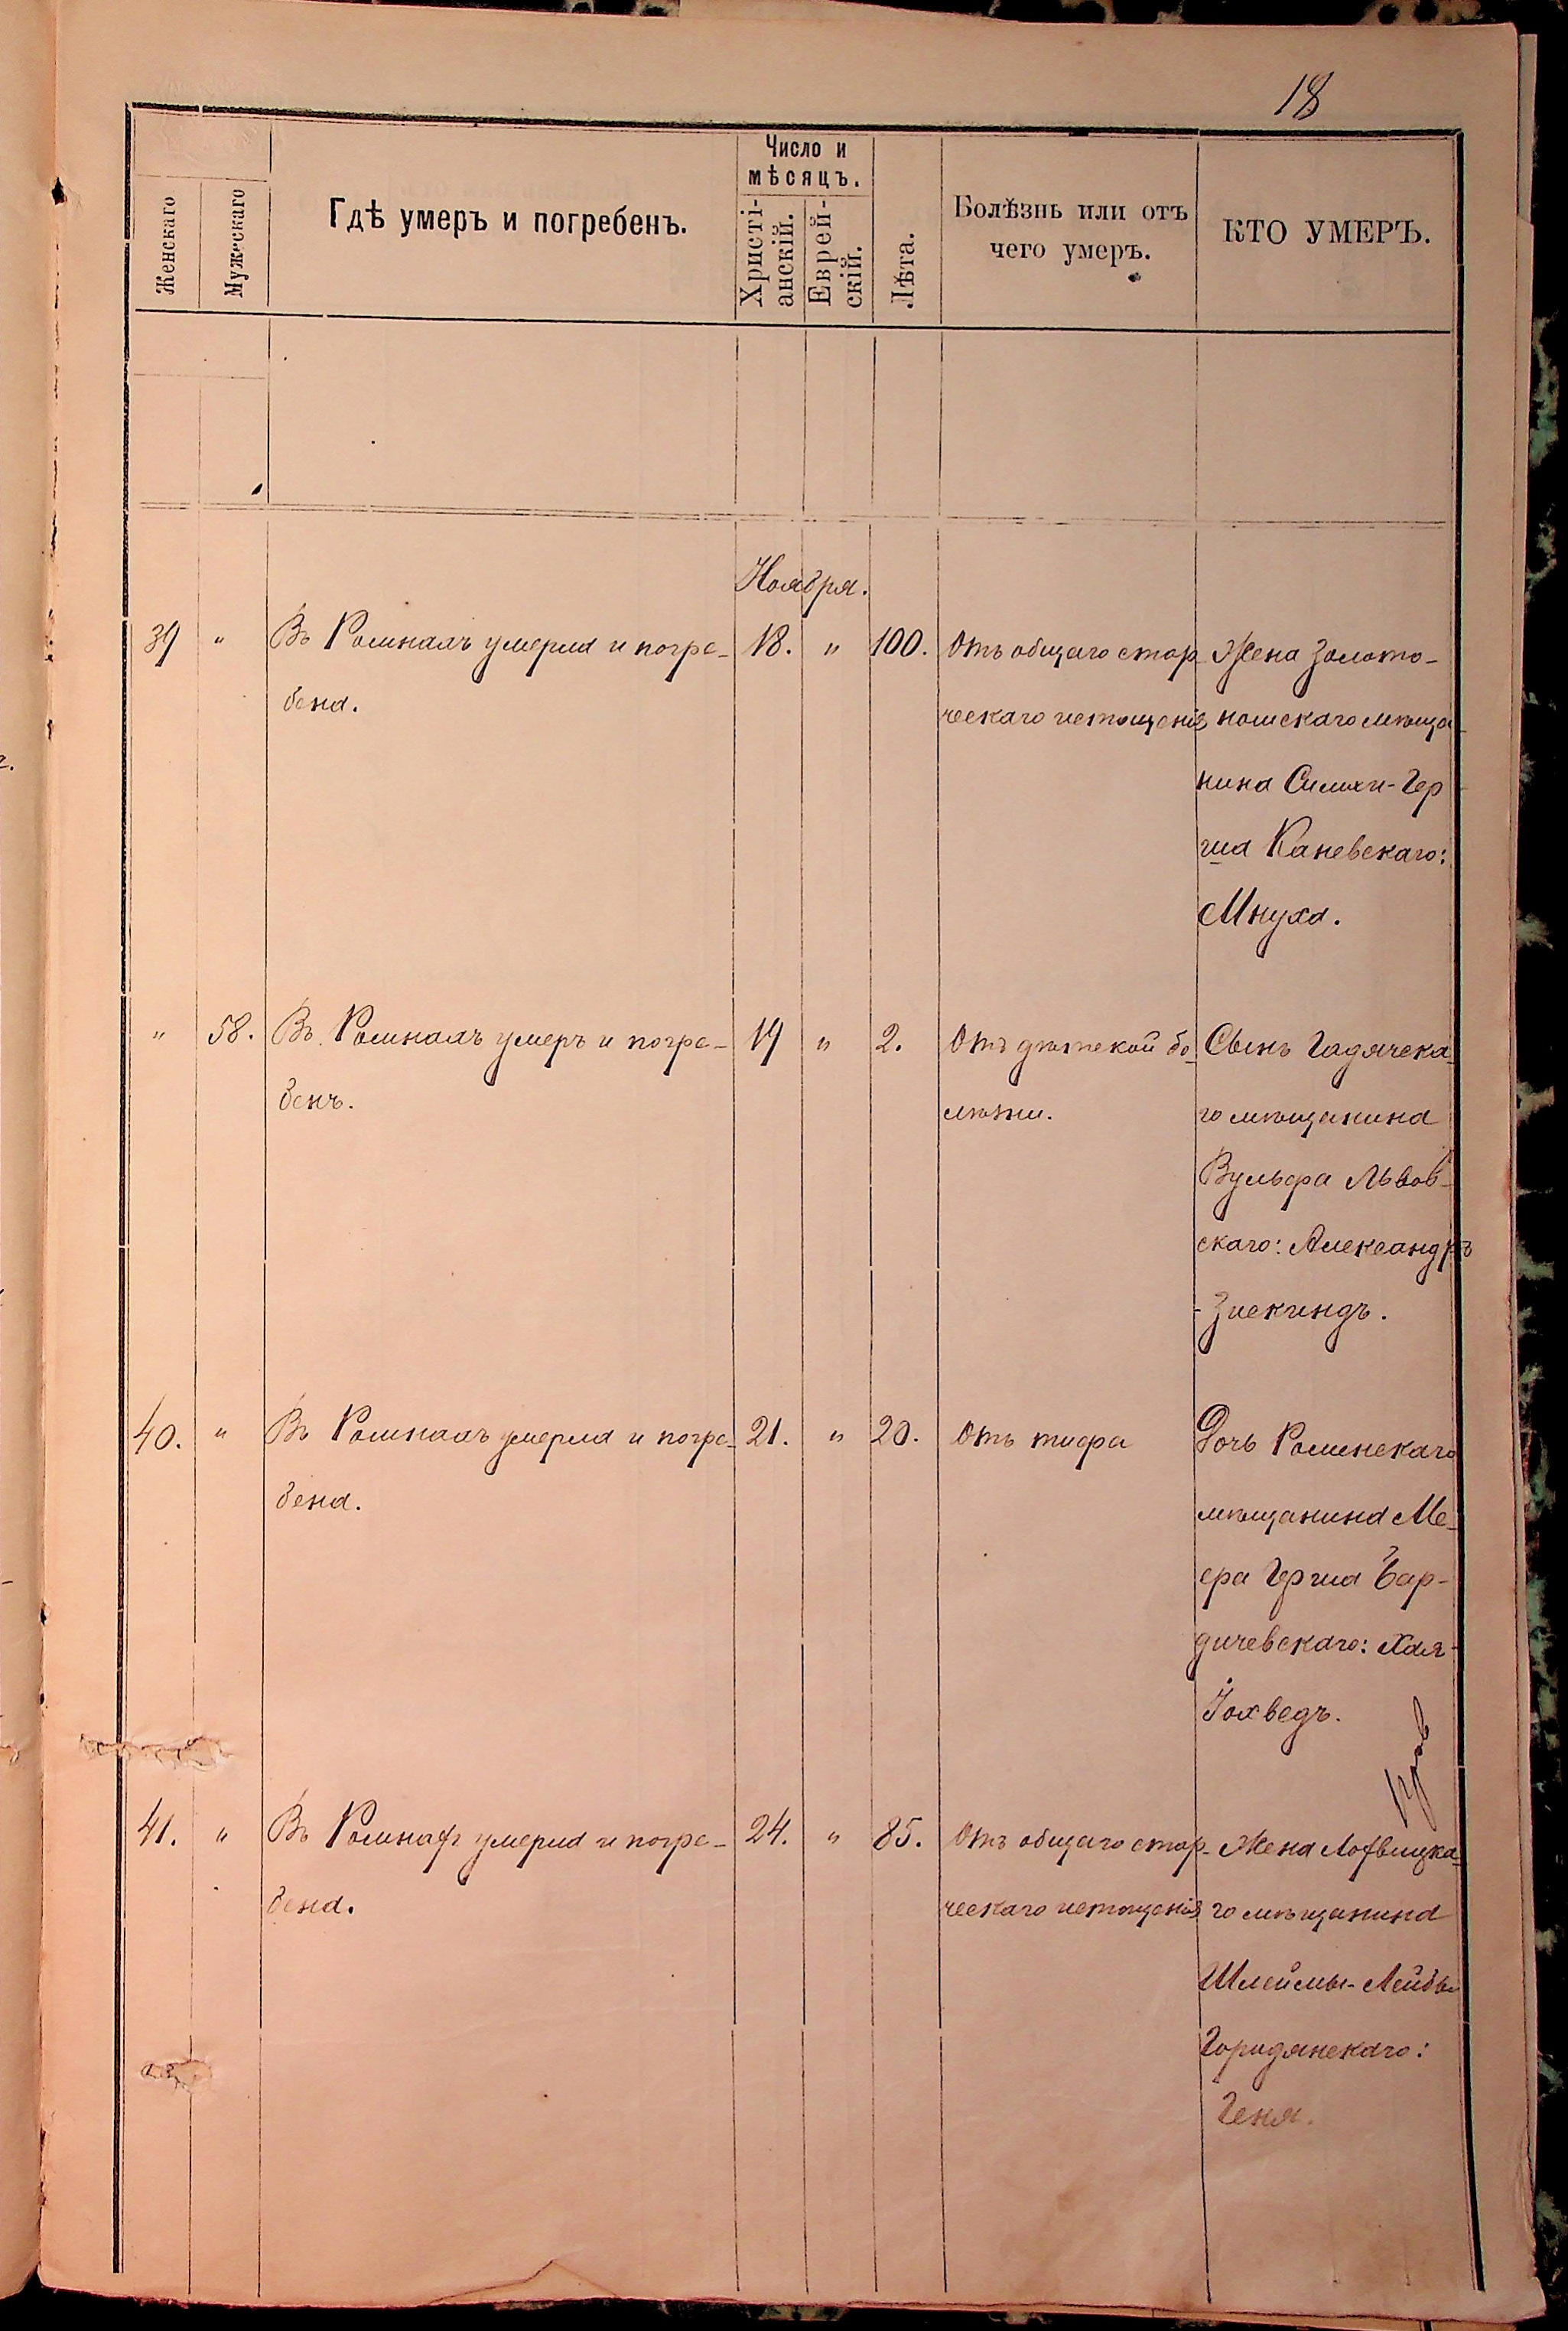 18
Женскаго
Мужескаго
Гдѣ умеръ и погребенъ.
Число и
мѣсяцъ.
Христі-
анскій.
Еврей-
скій.
Лѣта.
Болѣзнь или отъ
чего умеръ.
КТО УМЕРЪ.
Ноября.
39 " Въ Ромнахъ умерла и погре- 18. " 100. Отъ общаго стар- Жена Золото-
бена. ческаго истощенія ношскаго мѣща-
нина Симхи-Гер
ша Каневскаго:
Мнуха.
" 58. Въ Ромнахъ умеръ и погре- 19 " 2. Отъ дѣтской бо- Сынъ Гадячска-
бенъ. лѣзни. го мѣщанина
Вульфа Львов-
скаго: Александръ
-Зискиндъ.
40. " Въ Ромнахъ умерла и погре- 21. " 20. Отъ тифа Дочь Роменскаго
бена. мѣщанина Ме-
ера Герша Бар-
дичевскаго: Хая-
Іохведъ.
41. " Въ Ромнахъ умерла и погре- 24. " 85. Отъ общаго стар- Жена Лохвицка-
бена. ческаго истощенія го мѣщанина
Шлеймы-Лейбы
Городянскаго:
Геня.